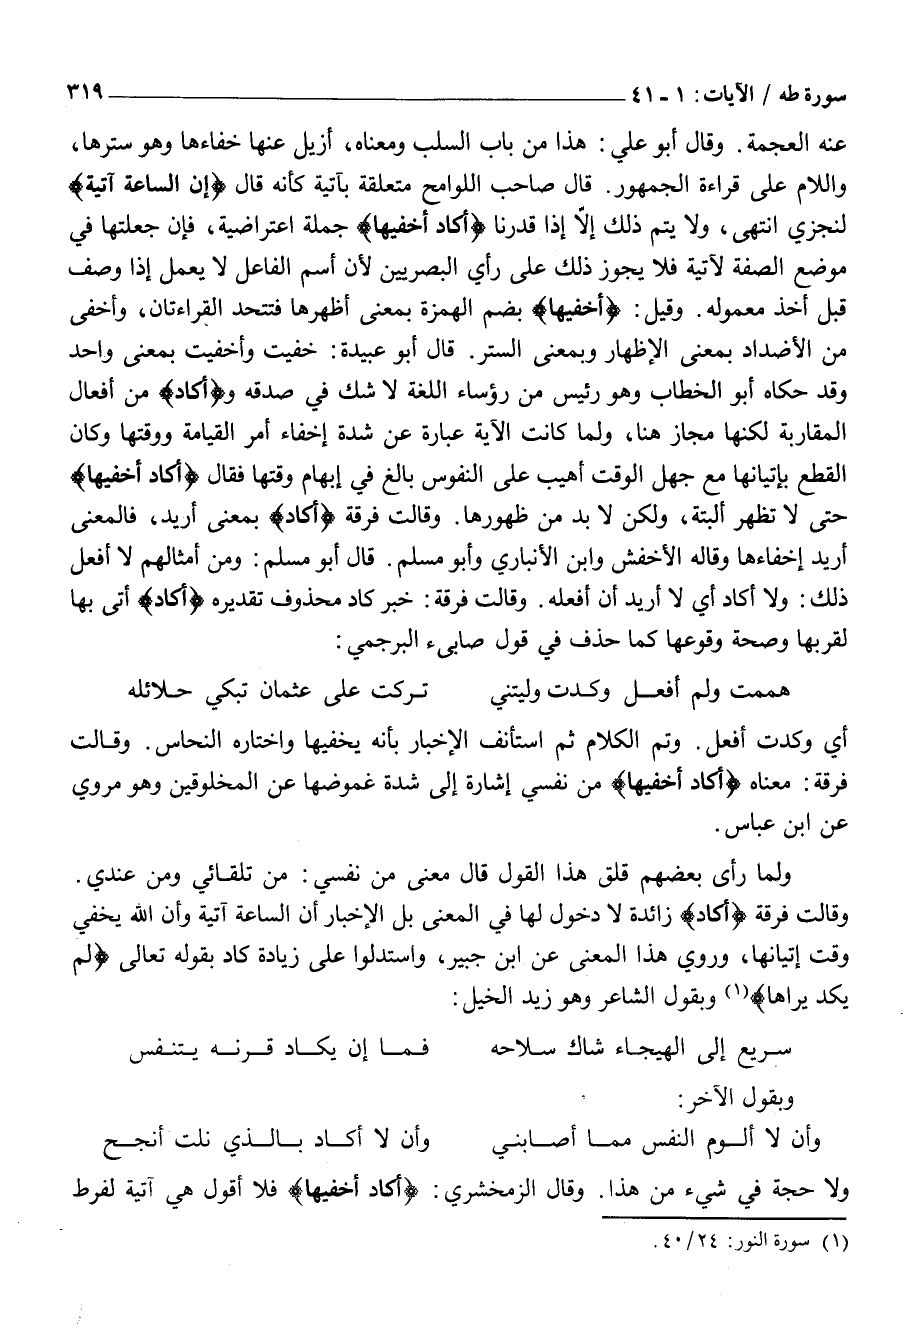 سورة طه / الآيات: ١ - ٤١ ٣١٩
عنه العجمة. وقال أبو علي: هذا من باب السلب ومعناه، أزيل عنها خفاءها وهو سترها،
واللام على قراءة الجمهور. قال صاحب اللوامح متعلقة بآتية كأنه قال ﴿إن الساعة آتية﴾
لنجزي انتهى، ولا يتم ذلك إلّا إذا قدرنا ﴿أكاد أخفيها﴾ جملة اعتراضية، فإن جعلتها في
موضع الصفة لآتية فلا يجوز ذلك على رأي البصريين لأن أسم الفاعل لا يعمل إذا وصف
قبل أخذ معموله. وقيل: ﴿أخفيها﴾ بضم الهمزة بمعنى أظهرها فتتحد القراءتان، وأخفى
من الأضداد بمعنى الإظهار وبمعنى الستر. قال أبو عبيدة: خفيت وأخفيت بمعنى واحد
وقد حكاه أبو الخطاب وهو رئيس من رؤساء اللغة لا شك في صدقه و﴿أكاد﴾ من أفعال
المقاربة لكنها مجاز هنا، ولما كانت الآية عبارة عن شدة إخفاء أمر القيامة ووقتها وكان
القطع بإتيانها مع جهل الوقت أهيب على النفوس بالغ في إبهام وقتها فقال ﴿أكاد أخفيها﴾
حتى لا تظهر ألبتة، ولكن لا بد من ظهورها. وقالت فرقة ﴿أكاد﴾ بمعنى أريد، فالمعنى
أريد إخفاءها وقاله الأخفش وابن الأنباري وأبو مسلم. قال أبو مسلم: ومن أمثالهم لا أفعل
ذلك: ولا أكاد أي لا أريد أن أفعله. وقالت فرقة: خبر كاد محذوف تقديره ﴿أكاد﴾ أتى بها
لقربها وصحة وقوعها كما حذف في قول صابىء البرجمي:
هممت ولم أفعل وكدت وليتني تركت على عثمان تبكي حلائله
أي وكدت أفعل. وتم الكلام ثم استأنف الإخبار بأنه يخفيها واختاره النحاس. وقالت
فرقة: معناه ﴿أكاد أخفيها﴾ من نفسي إشارة إلى شدة غموضها عن المخلوقين وهو مروي
عن ابن عباس.
ولما رأى بعضهم قلق هذا القول قال معنى من نفسي: من تلقائي ومن عندي.
وقالت فرقة ﴿أكاد﴾ زائدة لا دخول لها في المعنى بل الإخبار أن الساعة آتية وأن الله يخفي
وقت إتيانها، وروي هذا المعنى عن ابن جبير، واستدلوا على زيادة كاد بقوله تعالى ﴿لم
يكد يراها﴾(١) وبقول الشاعر وهو زيد الخيل:
سريع إلى الهيجاء شاك سلاحه فما إن يكاد قرنه يتنفس
وبقول الآخر:
وأن لا ألوم النفس مما أصابني وأن لا أكاد بالذي نلت أنجح
ولا حجة في شيء من هذا. وقال الزمخشري: ﴿أكاد أخفيها﴾ فلا أقول هي آتية لفرط
(١) سورة النور: ٤٠/٢٤.